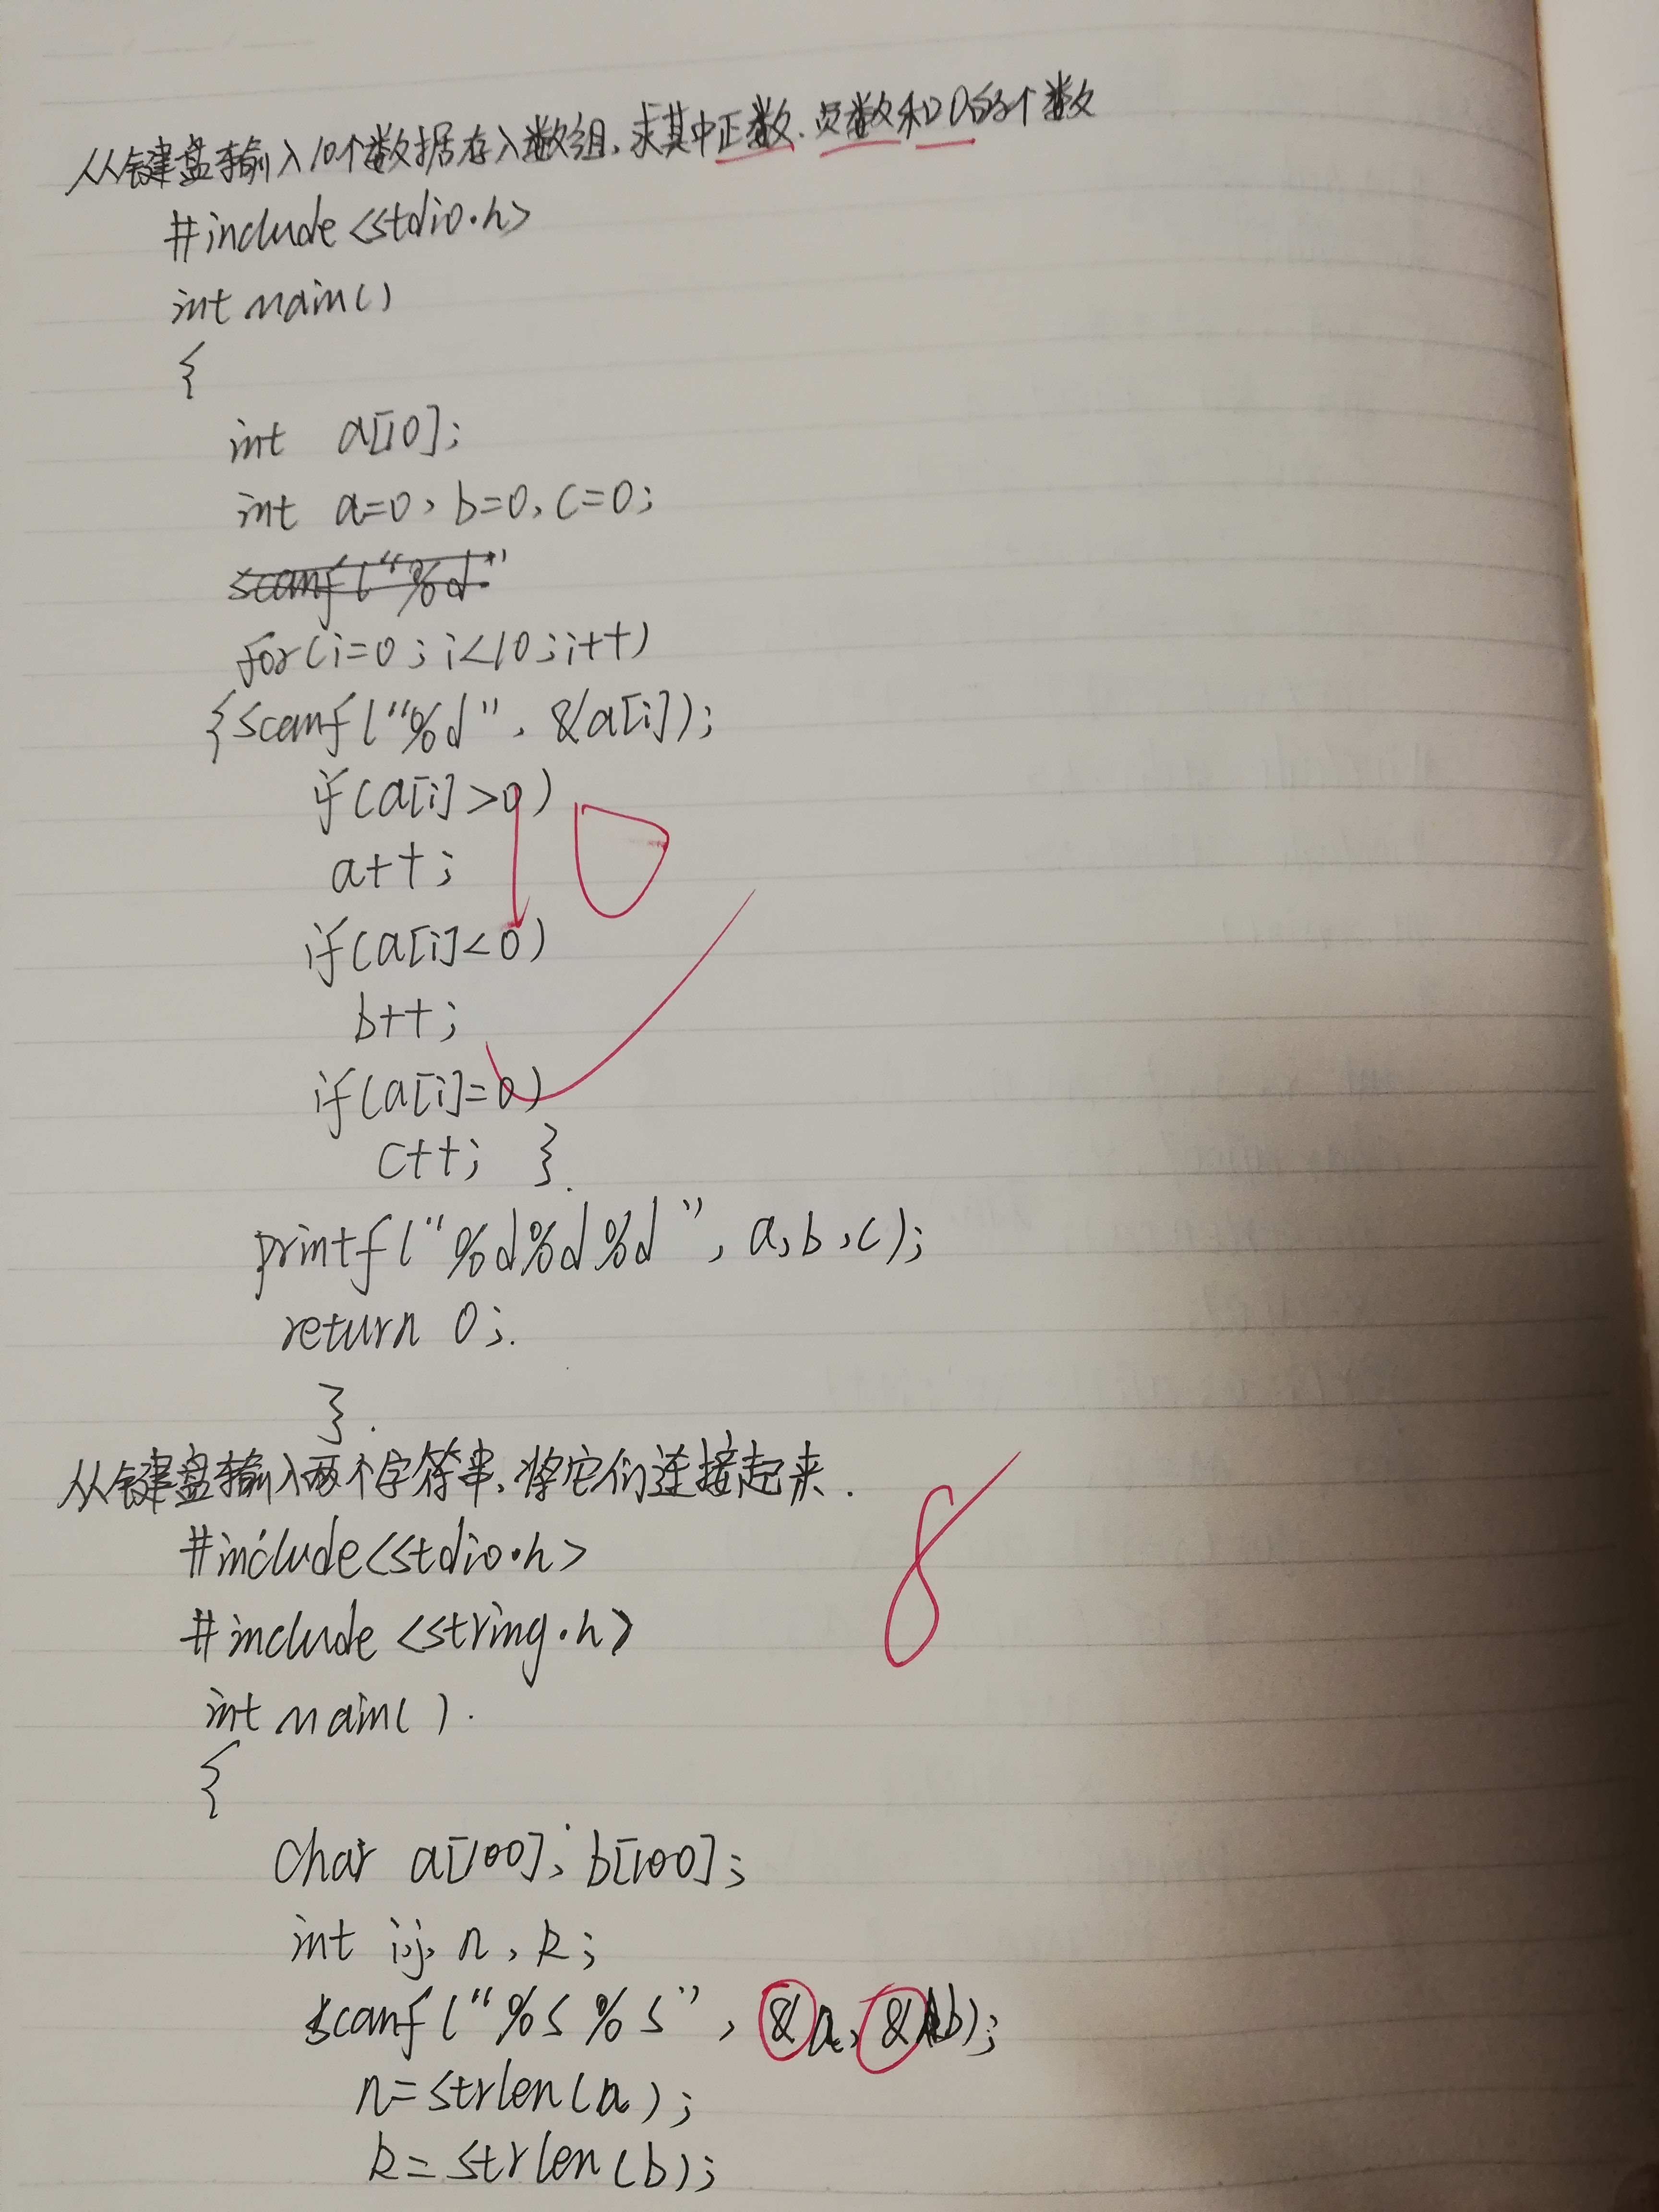 从键盘输入10个数据存入数组,求其中正数、负数和0的个数
#include<stdio.h>
int main()
{
int a[10];
int a=0, b=0, c=0;
scanf("%d"
for(i=0;i<10;i++)
{scanf("%d", &a[i]);
if(a[i]>0)
a++;
if(a[i]<0)
b++;
if(a[i]=0)
c++; }
10
printf("%d%d%d", a,b,c);
return 0;
}
从键盘输入两个字符串,将它们连接起来.
8
#include<stdio.h>
#include<string.h>
int main()
{
char a[100], b[100];
int i,j, n, k;
scanf("%s%s", &a, &b);
n=strlen(a);
k=strlen(b);